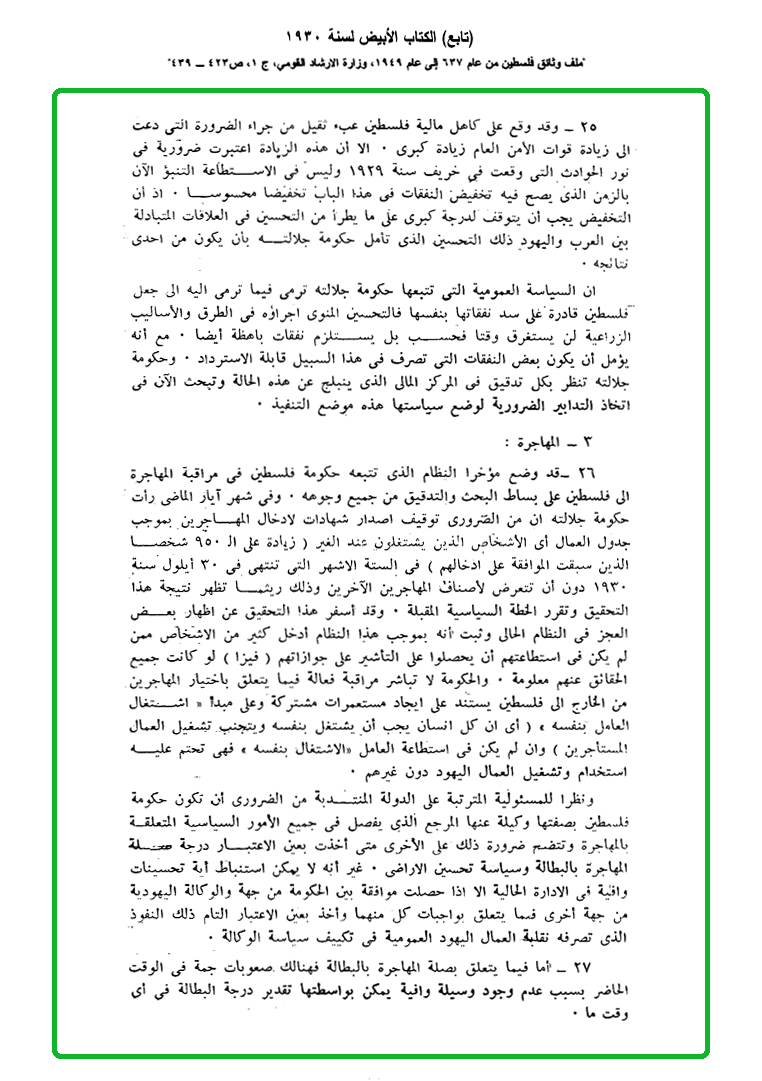 (تابع) الكتاب الأبيض لسنة ١٩٣٠
"ملف وثائق فلسطين من عام ٦٣٧ إلى عام ١٩٤٩، وزارة الارشاد القومي، ج ١، ص٤٢٣ – ٤٣٩"
٢٥ – وقد وقع على كاهل مالية فلسطين عبء ثقيل من جراء الضرورة التى دعت
الى زيادة قوات الأمن العام زيادة كبرى ٠ الا أن هذه الزيادة اعتبرت ضرورية فى
نور الحوادث التى وقعت فى خريف سنة ١٩٢٩ وليس فى الاستطاعة التنبؤ الآن
بالزمن الذى يصح فيه تخفيض النفقات فى هذا الباب تخفيضا محسوسا ٠ اذ أن
التخفيض يجب أن يتوقف لدرجة كبرى على ما يطرأ من التحسين فى العلاقات المتبادلة
بين العرب واليهود ذلك التحسين الذى تأمل حكومة جلالته بأن يكون من احدى
نتائجه ٠
ان السياسة العمومية التى تتبعها حكومة جلالته ترمى فيما ترمى اليه الى جعل
فلسطين قادرة على سد نفقاتها بنفسها فالتحسين المنوى اجراؤه فى الطرق والأساليب
الزراعية لن يستغرق وقتا فحسب بل يستلزم نفقات باهظة أيضا ٠ مع أنه
يؤمل أن يكون بعض النفقات التى تصرف فى هذا السبيل قابلة الاسترداد ٠ وحكومة
جلالته تنظر بكل تدقيق فى المركز المالى الذى ينبلج عن هذه الحالة وتبحث الآن فى
اتخاذ التدابير الضرورية لوضع سياستها هذه موضع التنفيذ ٠
٣ – المهاجرة :
٢٦ –قد وضع مؤخرا النظام الذى تتبعه حكومة فلسطين فى مراقبة المهاجرة
الى فلسطين على بساط البحث والتدقيق من جميع وجوهه ٠ وفى شهر آيار الماضى رأت
حكومة جلالته ان من الضرورى توقيف اصدار شهادات لادخال المهاجرين بموجب
جدول العمال أى الأشخاص الذين يشتغلون عند الغير ( زيادة على الـ ٩٥٠ شخصا
الذين سبقت الموافقة على ادخالهم ) فى الستة الاشهر التى تنتهى فى ٣٠ أيلول سنة
١٩٣٠ دون أن تتعرض لأصناف المهاجرين الآخرين وذلك ريثما تظهر نتيجة هذا
التحقيق وتقرر الخطة السياسية المقبلة ٠ وقد أسفر هذا التحقيق عن اظهار بعض
العجز فى النظام الحالى وثبت أنه بموجب هذا النظام أدخل كثير من الاشخاص ممن
لم يكن فى استطاعتهم أن يحصلوا على التأشير على جوازاتهم ( فيزا ) لو كانت جميع
الحقائق عنهم معلومة ٠ والحكومة لا تباشر مراقبة فعالة فيما يتعلق باختيار المهاجرين
من الخارج الى فلسطين يستند على ايجاد مستعمرات مشتركة وعلى مبدأ « اشتغال
العامل بنفسه » ( أى ان كل انسان يجب أن يشتغل بنفسه ويتجنب تشغيل العمال
المستأجرين ) وان لم يكن فى استطاعة العامل «الاشتغال بنفسه » فهى تحتم عليه
استخدام وتشغيل العمال اليهود دون غيرهم ٠
ونظرا للمسئولية المترتبة على الدولة المنتدبة من الضرورى أن تكون حكومة
فلسطين بصفتها وكيلة عنها المرجع الذى يفصل فى جميع الأمور السياسية المتعلقة
بالمهاجرة وتتضم ضرورة ذلك على الأخرى متى أخذت بعين الاعتبار درجة صلة
المهاجرة بالبطالة وسياسة تحسين الاراضى ٠ غير أنه لا يمكن استنباط أية تحسينات
وافية فى الادارة الحالية الا اذا حصلت موافقة بين الحكومة من جهة والوكالة اليهودية
من جهة أخرى فيما يتعلق بواجبات كل منهما وأخذ بعين الاعتبار التام ذلك النفوذ
الذى تصرفه نقابة العمال اليهود العمومية فى تكييف سياسة الوكالة ٠
٢٧ – أما فيما يتعلق بصلة المهاجرة بالبطالة فهنالك صعوبات جمة فى الوقت
الحاضر بسبب عدم وجود وسيلة وافية يمكن بواسطتها تقدير درجة البطالة فى أى
وقت ما ٠